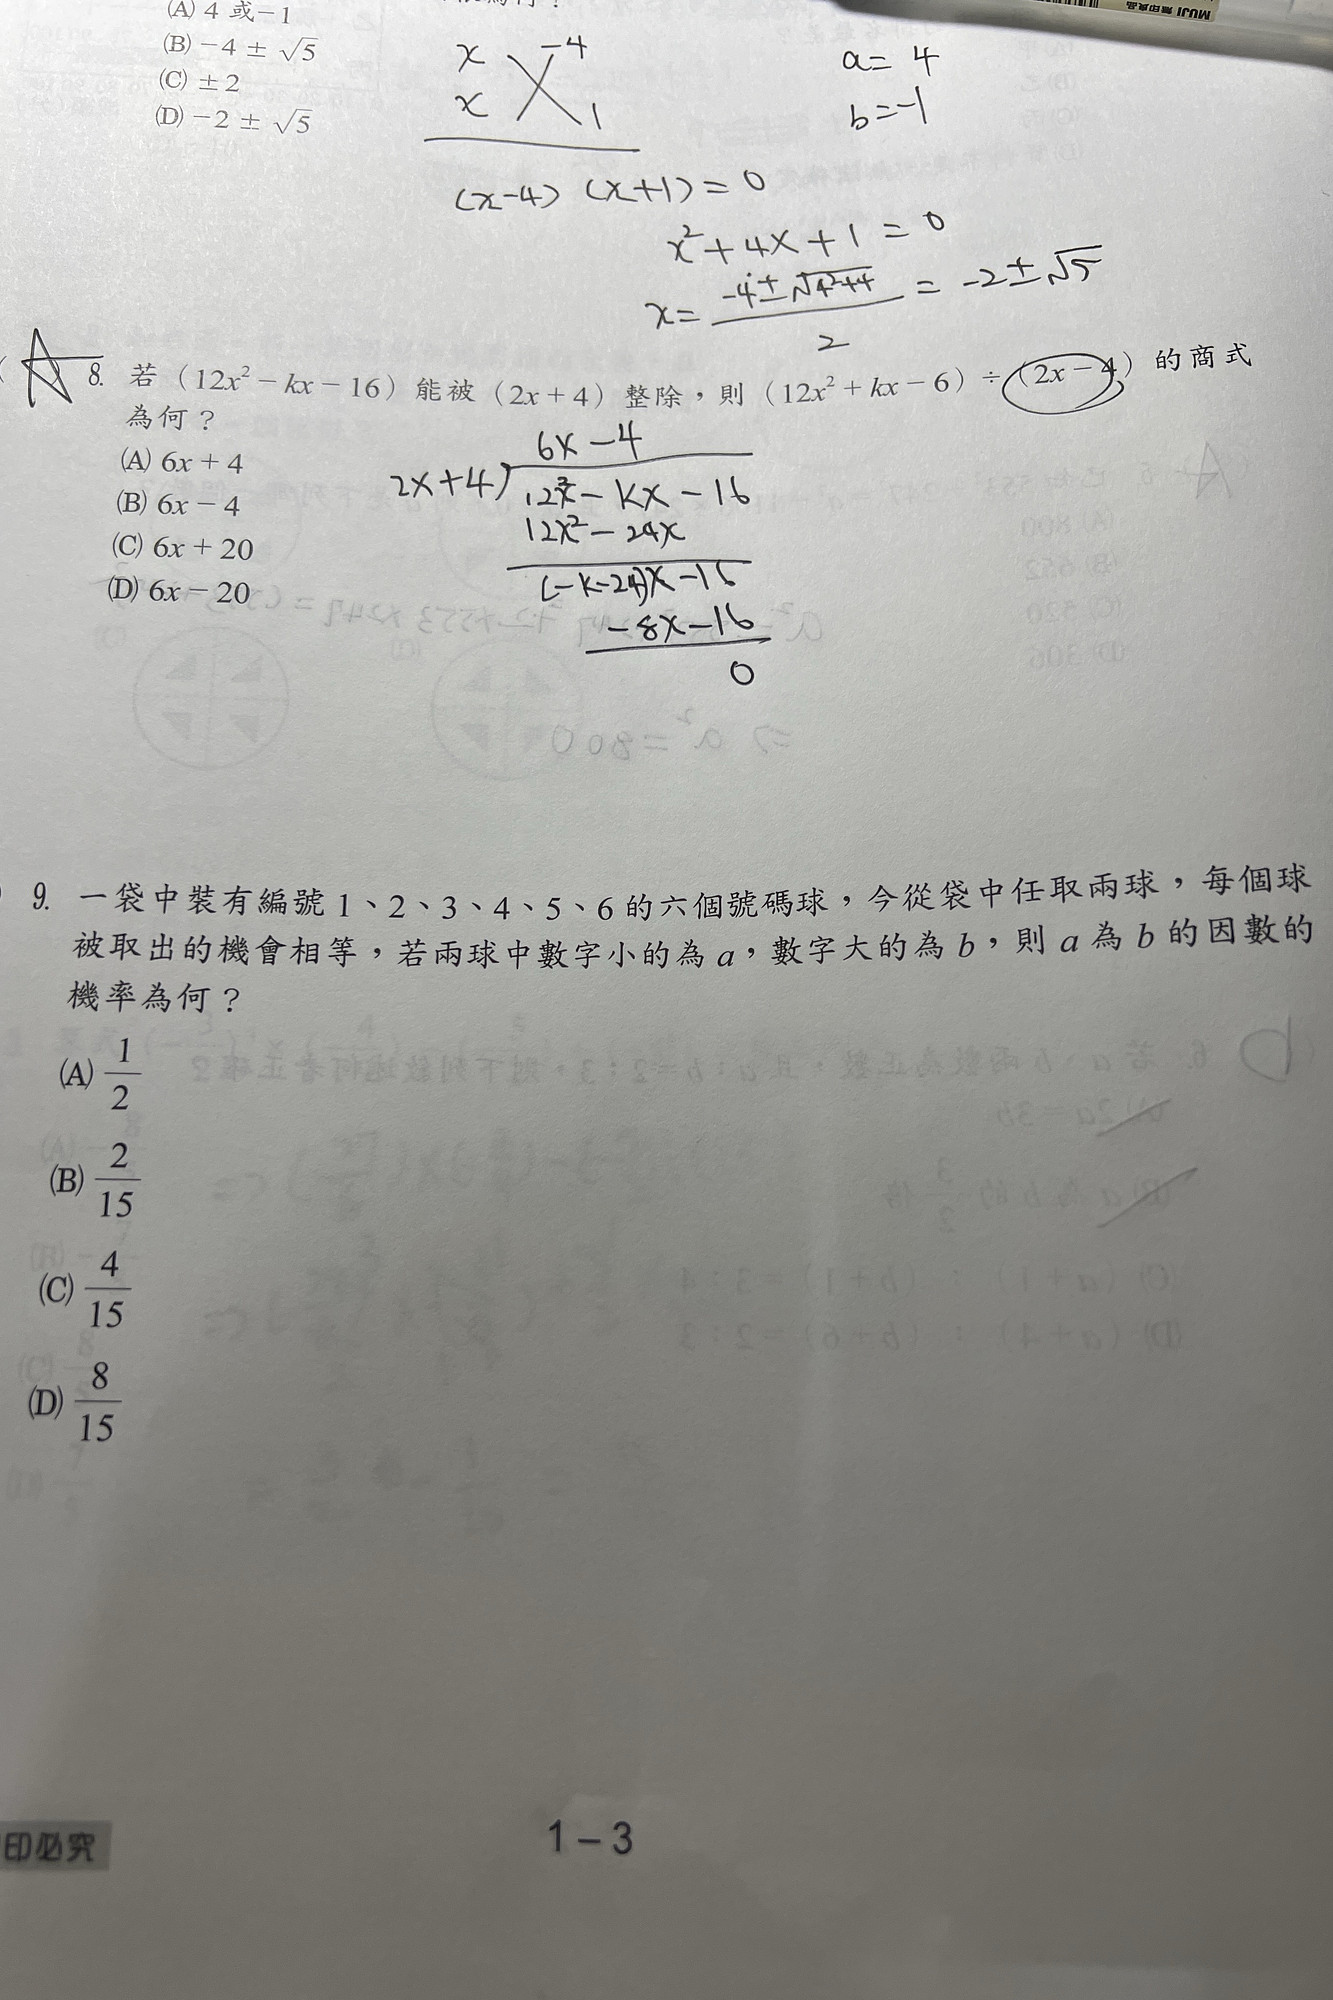 (A) 4 或 −1
(B) −4 ± √5
(C) ±2
(D) −2 ± √5
x −4
x 1
(x−4) (x+1) = 0
a = 4
b = −1
x² + 4x + 1 = 0
x = (−4 ± √(4²+4)) / 2 = −2 ± √5
8. 若 (12x² − kx − 16) 能被 (2x + 4) 整除，則 (12x² + kx − 6) ÷ (2x − 4) 的商式
為何？
(A) 6x + 4
(B) 6x − 4
(C) 6x + 20
(D) 6x − 20
6x − 4
2x + 4 ) 12x² − kx − 16
12x² − 24x
(−k−24)x − 16
−8x − 16
0
9. 一袋中裝有編號 1、2、3、4、5、6 的六個號碼球，今從袋中任取兩球，每個球
被取出的機會相等，若兩球中數字小的為 a，數字大的為 b，則 a 為 b 的因數的
機率為何？
(A) 1/2
(B) 2/15
(C) 4/15
(D) 8/15
印必究
1 − 3
MUJI 無印良品